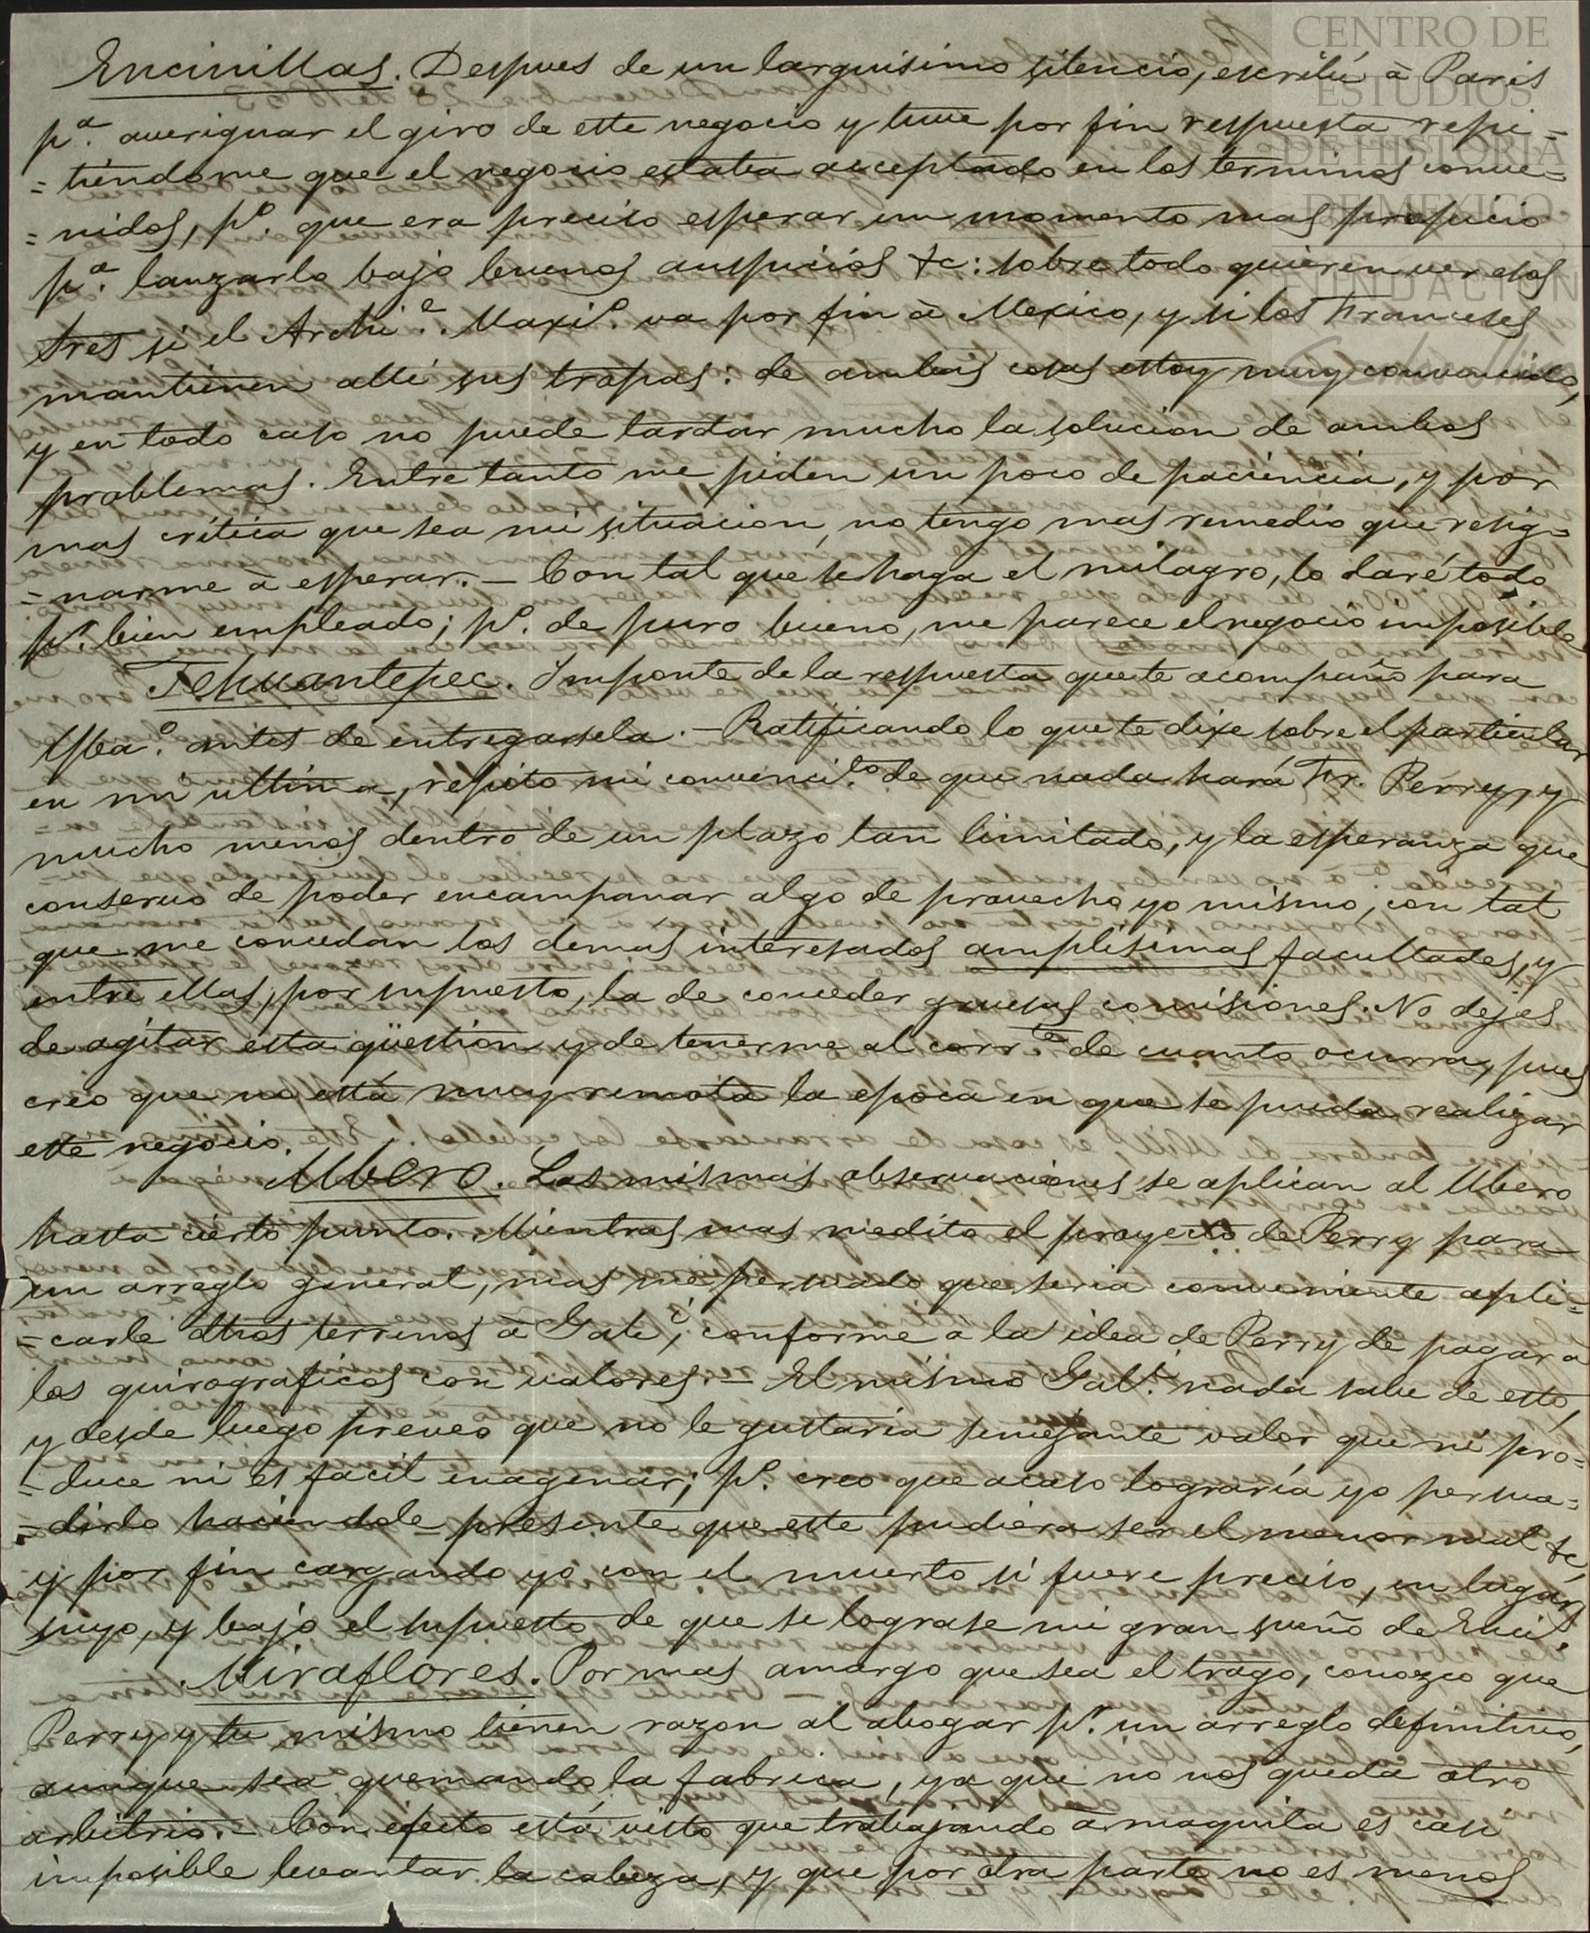 CENTRO DE
ESTUDIOS
DE HISTORIA
DE MEXICO
FUNDACIÓN
Encinillas. Despues de un larguisimo silencio, escribí à Paris
pª. averiguar el giro de este negocio y tuve por fin respuesta repi-
=tiéndome que el negocio estaba acceptado en los terminos conve-
=nidos, pº. que era preciso esperar un momento mas propicio
pª. lanzarlo bajo buenos auspicios &c: sobre todo quieren ver esos
tres si el Archi.e Maxi.o va por fin à Mexico, y si los Franceses
mantienen allí sus tropas: de ambas cosas estoy muy convencido,
y en todo caso no puede tardar mucho la solucion de ambos
problemas. Entre tanto me piden un poco de paciencia, y por
mas crítica que sea mi situacion, no tengo mas remedio que resig-
=narme à esperar. — Con tal que se haga el milagro, lo daré todo
pr. bien empleado; pº. de puro bueno, me parece el negocio imposible
Tehuantepec. Imponte de la respuesta que te acompaño para
Yba.o antes de entregarsela. — Ratificando lo que te dixe sobre el particular
en mi ultima, repito mi convenci.to de que nada hará Fr. Perry, y
mucho menos dentro de un plazo tan limitado, y la esperanza que
conservo de poder encampanar algo de provecho yo mismo, con tal
que me concedan los demas interesados amplisimas facultades, y
entre ellas, por supuesto, la de conceder gruesas comisiones. No dejes
de agitar esta qüestion y de tenerme al corr.te de cuanto ocurra, pues
creo que no está muy remota la epoca en que se pueda realizar
este negocio.
Ubero. Las mismas observaciones se aplican al Ubero
hasta cierto punto. Mientras mas medito el proyecto de Perry para
un arreglo general, mas me persuado que seria conveniente apli-
=carle otros terrenos à conforme à la idea de Perry de pagar à
los quirograficos con valores. — El mismo Gal.i nada sabe de esto,
y desde luego preveo que no le gustaría semejante valor que ni pro-
=duce ni es facil enagenar; pº. creo que acaso lograría yo persua-
=dirlo haciendole presente que este pudiera ser el menor mal &c,
y por fin cargando yo con el muerto si fuere preciso, en lugar
suyo, y bajo el supuesto de que se lograse mi gran sueño de Enci.s
Miraflores. Por mas amargo que sea el trago, conozco que
Perry y tu mismo tienen razon al abogar pr. un arreglo definitivo,
aunque sea quemando la fabrica, ya que no nos queda otro
arbitrio. — Con efecto está visto que trabajando à maquila es casi
imposible levantar la cabeza, y que por otra parte no es menos